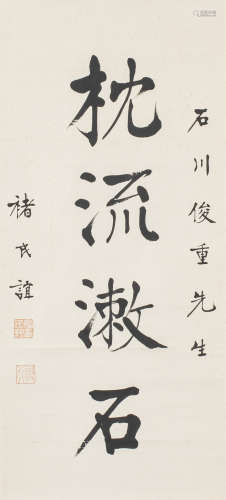 石川俊重先生
枕流漱石
褚民誼